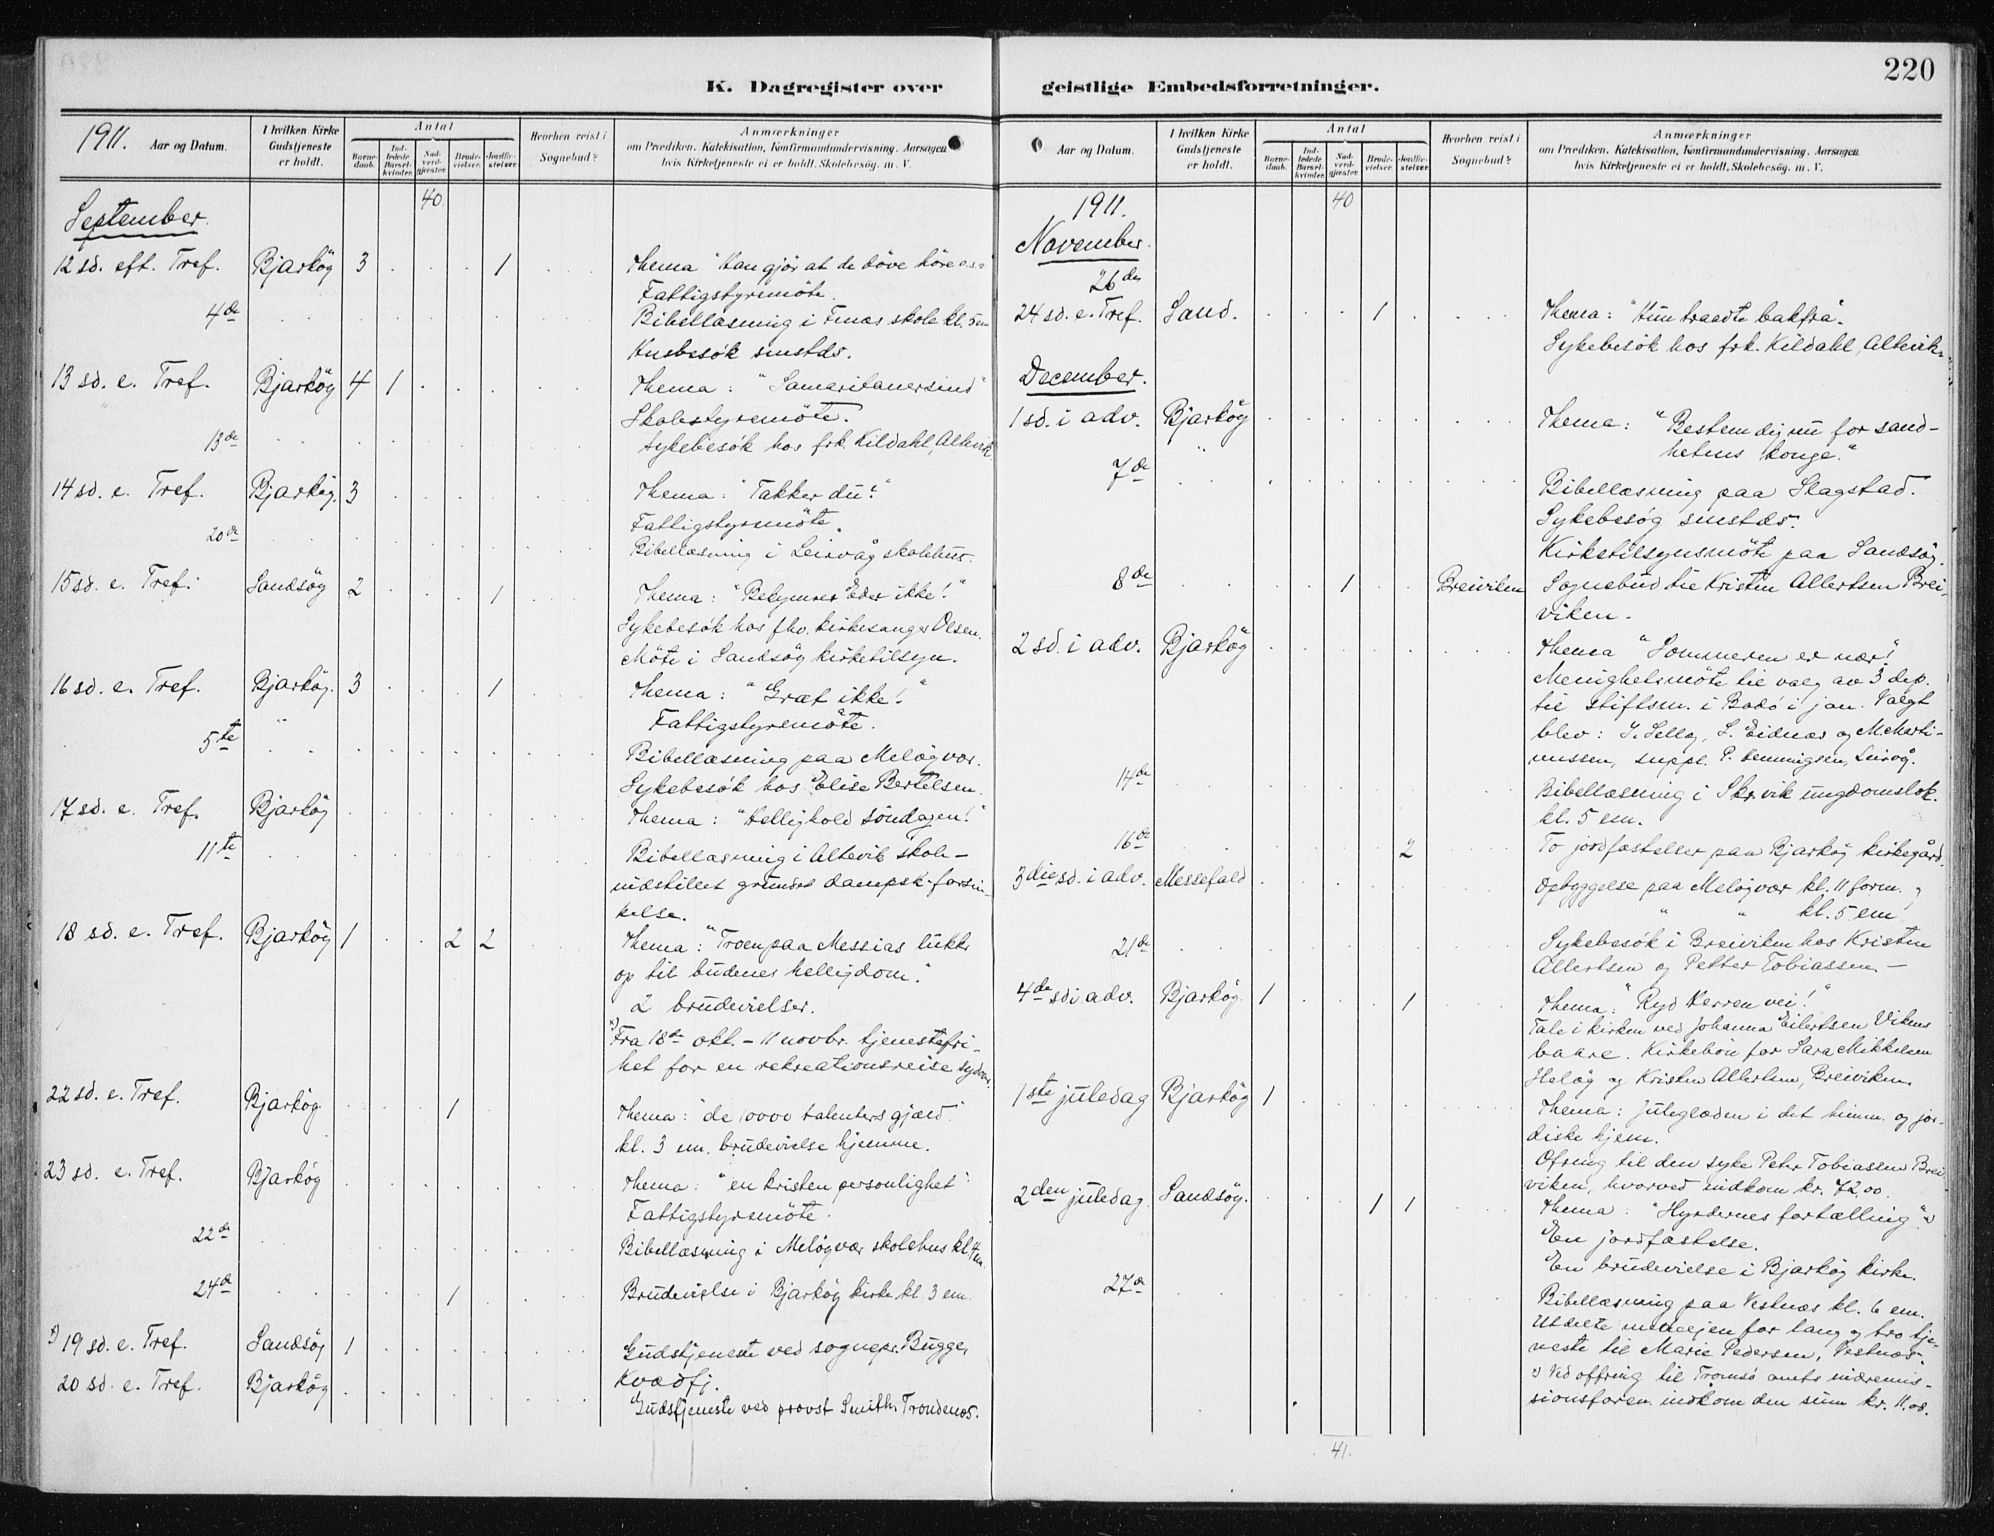 220
K. Dagregister over geistlige Embedsforretninger.
1911. Aar og Datum.
I hvilken Kirke Gudstjeneste er holdt.
Antal
Barnedaab.
Indledede Barselkvinder.
Nadverdgjæster.
Brudevielser.
Jordfæstelser.
Hvorhen reist i Sognebud?
Anmærkninger
om Prædiken, Katekisation, Konfirmandundervisning, Aarsagen
hvis Kirketjeneste ei er holdt, Skolebesøg, m. V.
40
September.
12 sd. eft. Tref. Bjarköy 3 1 Thema "Han gjör at de döve höre o.s.v."
Fattigstyremöte.
4de Bibellæsning i Fnæs skole kl. 5 em
Husbesök smstds.
13 sd. e. Tref. Bjarköy 4 1 Thema: "Samaritanersind"
Skolestyremöte.
13de Sykebesök hos frk. Kildahl, Altevik.
14 sd. e. Tref. Bjarköy. 3 Thema: "Takker du?"
Fattigstyremöte.
20de Bibellæsning i Leirvåg skolehus.
15 sd. e. Tref. Sandsöy 2 1 Thema: "Bekymrer Eder ikke!"
Sykebesök hos fhv. kirkesanger Olsen.
Möte i Sandsöy kirketilsyn.
16 sd. e. Tref. Bjarköy. 3 1 Thema: "Græt ikke!"
Fattigstyremöte.
5te " Bibellæsning paa Meløyvær.
Sykebesök hos Elise Bertelsen.
17 sd. e. Tref. Bjarköy Thema: "Hellighold söndagen!"
11te Bibellæsning i Altevik skole-
indstillet grundet dampsk.forsin-
kelse.
18 sd. e. Tref. Bjarköy 1 2 2 Thema: "Troen paa Messias lukke
op til budenes helligdom."
2 brudevielser.
x) Fra 18de okt. - 11 novbr. tjenestefri-
het for en rekreationsreise sydover.
22 sd. e. Tref. Bjarköy. 1 Thema: "de 10000 talenters gjæld"
kl. 3 em. brudevielse hjemme.
23 sd. e. Tref. Bjarköy Thema: "en kristen personlighet"
Fattigstyremöte.
22de Bibellæsning i Meløyvær skolehus kl. 4 em
24de 1 Brudevielse i Bjarköy kirke kl. 3 em.
x) 19 sd. e. Tref. Sandsöy 1 Gudstjeneste ved sognepr. Bugge,
Kvædfj.
20 sd. e. Tref. Bjarköy Gudstjeneste ved provst Smith, Trondenæs.
Aar og Datum.
I hvilken Kirke Gudstjeneste er holdt.
Antal
Barnedaab.
Indledede Barselkvinder.
Nadverdgjæster.
Brudevielser.
Jordfæstelser.
Hvorhen reist i Sognebud?
Anmærkninger
om Prædiken, Katekisation, Konfirmandundervisning, Aarsagen
hvis Kirketjeneste ei er holdt, Skolebesøg, m. V.
1911. 40
November.
26de
24 sd. e. Tref. Sand. 1 Thema: "Hun traadte bakfra".
Sykebesök hos frk. Kildahl, Altevik.
December.
1 sd. i adv. Bjarköy Thema: "Bestem dig nu for sand-
hetens konge."
7de " Bibellæsning paa Slagstad.
Sykebesög smstds.
Kirketilsynsmöte paa Sandsöy.
8de 1 Breiviken Sognebud til Kristen Allertsen Brei-
viken.
2 sd. i adv. Bjarköy Thema "Sommeren er nær!"
Menighetsmöte til valg av 3 dep.
til stiftsm. i Bodö i jan. Valgt
blev: J. Selly, L. Eidnæs og M. Marti-
nussen, suppl. P. Hemmingsen, Leirvåg.
14de Bibellæsning i Skrvik ungdomslok.
kl. 5 em.
16de 2 To jordfæstelser paa Bjarköy kirkegård.
3die sd. i adv. Messefald Opbyggelse paa Meløyvær kl. 11 form. og
" " kl. 5 em.
21de Sykebesök i Breiviken hos Kristen
Allertsen og Petter Tobiassen. -
4de sd i adv. Bjarköy. 1 1 Thema: "Ryd Herren vei!"
Tale i kirken ved Johanna Eilertsen Vikens
baare. Kirkebön for Sara Mikkelsen
Heløy og Kristen Allertsen, Breiviken.
1ste juledag Bjarköy 1 Thema: Juleglæden i det himm. og jor-
diske hjem.
Ofring til den syke Peter Tobiassen Brei-
viken, hvorved indkom kr. 72,00.
2den juledag Sandsöy. 1 1 Thema: "Hyrdernes fortælling" x)
En jordfæstelse.
En brudevielse i Bjarköy kirke.
27de Bibellæsning paa Vestnæs kl. 6 em.
Utdelte medaljen for lang og tro tje-
neste til Marie Pedersen, Vestnæs.
x) Ved offring til Tromsö amts indremis-
sionsforen. indkom den sum kr. 11.00.
41.